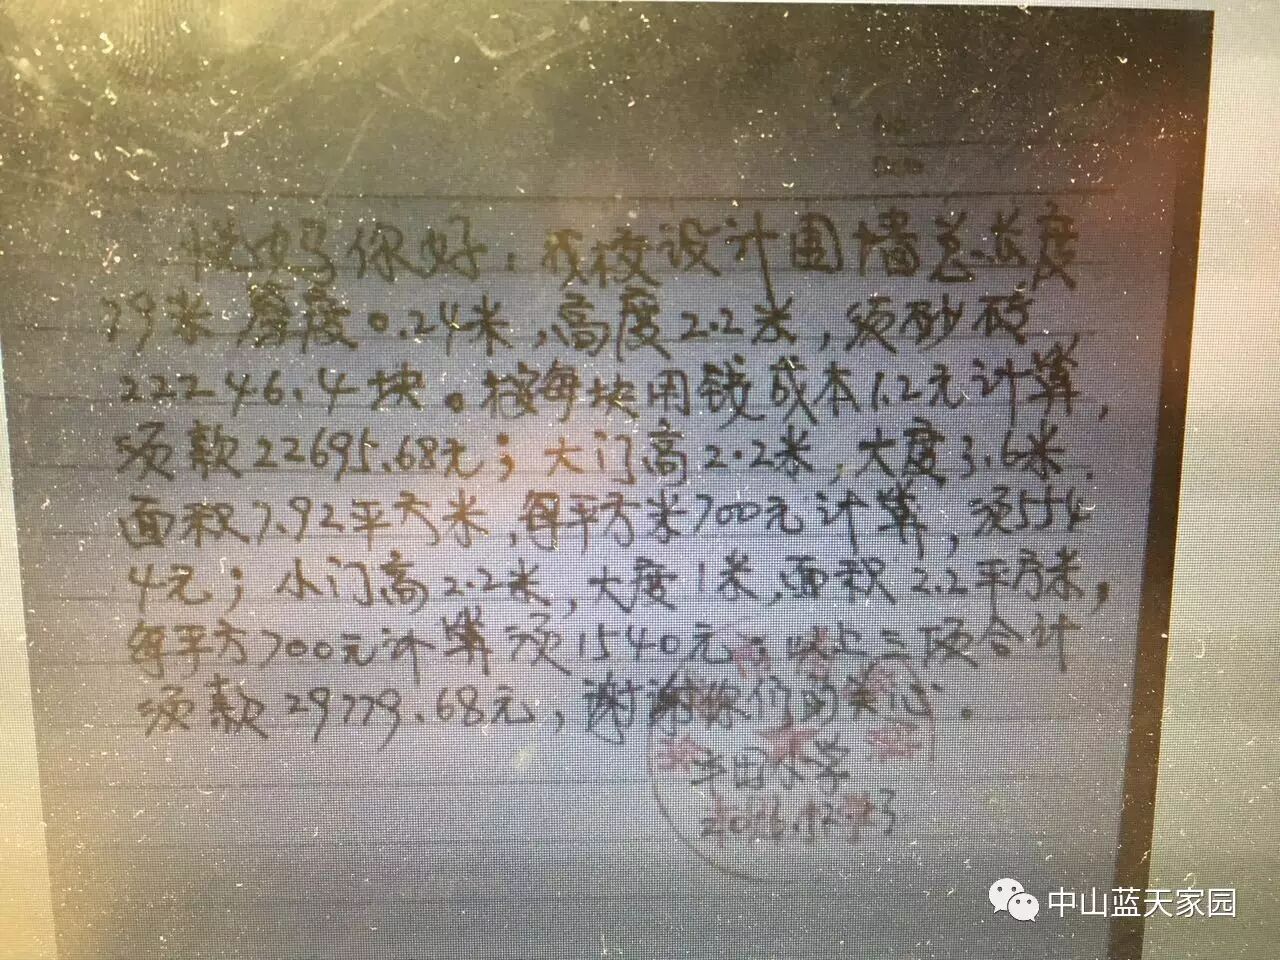 No.
Date
你好，我校设计围墙总长度
79米厚度0.24米，高度2.2米，须砂砖
22246.4块。按每块用钱成本1.2元计算，
须款22695.68元；大门高2.2米，大度3.6米，
面积7.92平方米，每平方米700元计算，须554
4元；小门高2.2米，大度1米，面积2.2平方米，
每平方700元计算须1540元；以上三项合计
须款29779.68元，谢谢你们的关心。
田小学
中山蓝天家园